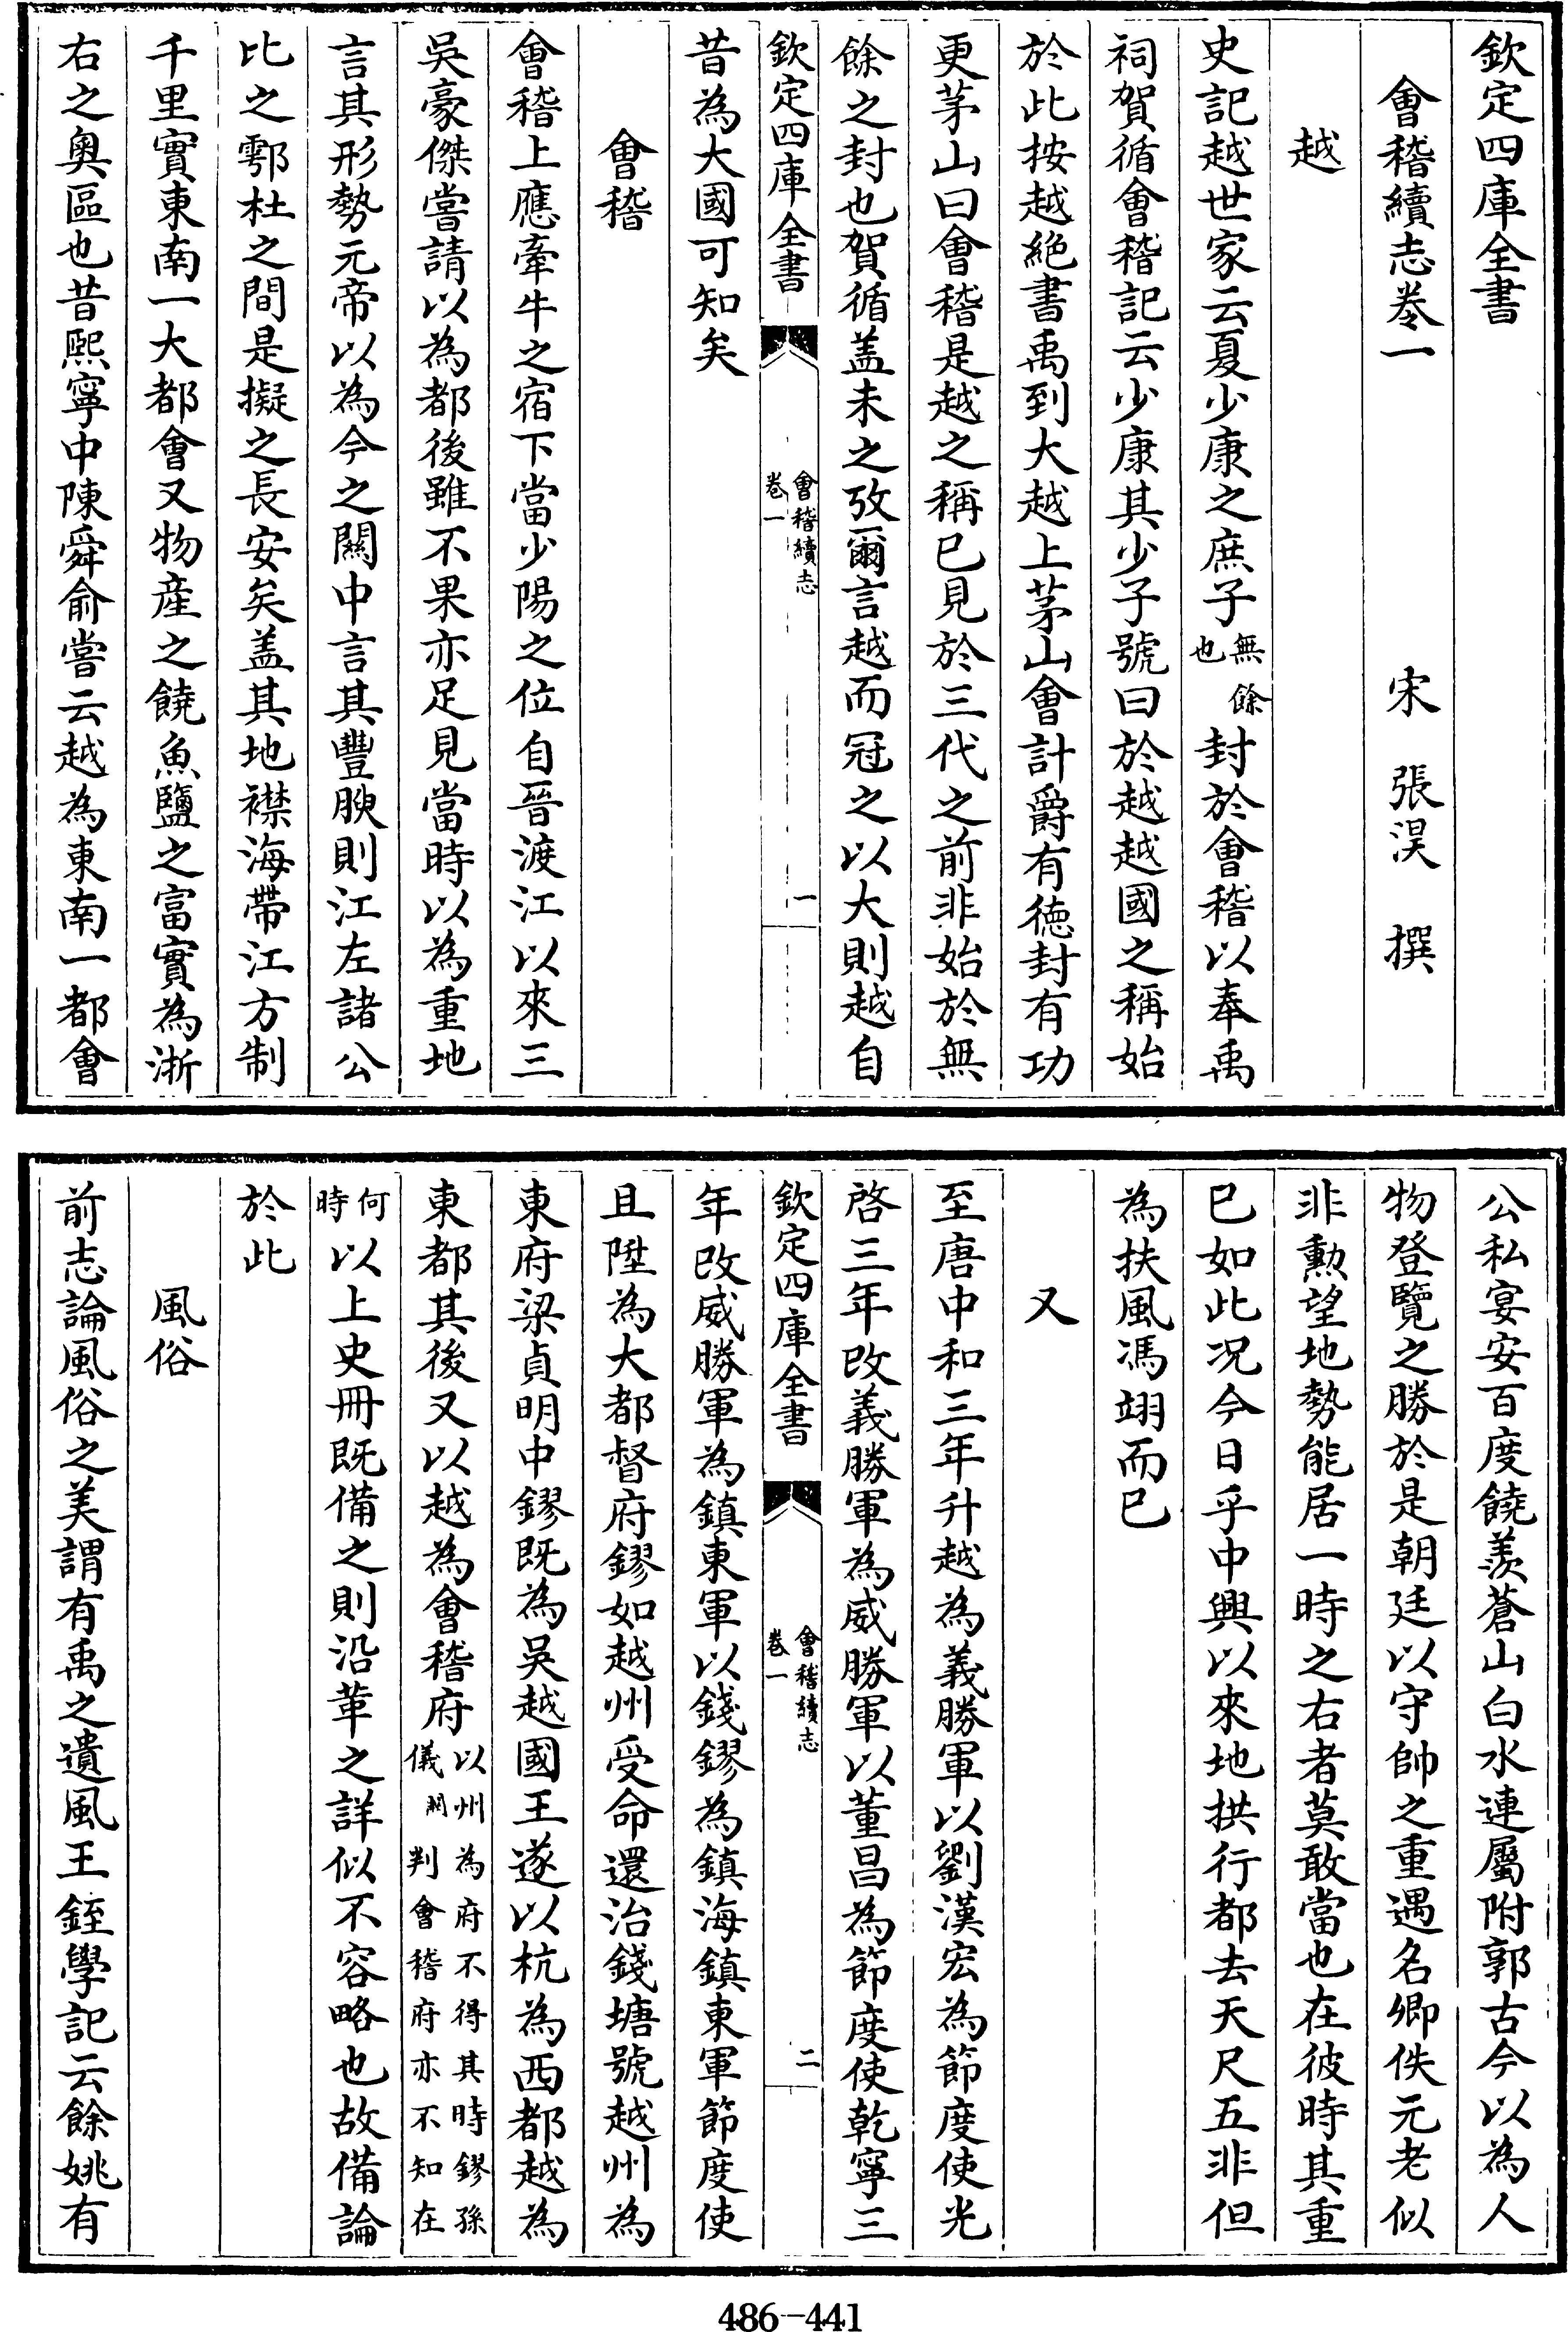 欽定四庫全書
會稽續志卷一
宋 張淏 撰
越
史記越世家云夏少康之庶子無餘也封於會稽以奉禹
祠賀循會稽記云少康其少子號曰於越越國之稱始
於此按越絶書禹到大越上茅山會計爵有德封有功
更茅山曰會稽是越之稱已見於三代之前非始於無
餘之封也賀循盖未之攷爾言越而冠之以大則越自
欽定四庫全書
會稽續志
卷一
一
昔為大國可知矣
會稽
會稽上應牽牛之宿下當少陽之位自晉渡江以來三
吳豪傑嘗請以為都後雖不果亦足見當時以為重地
言其形勢元帝以為今之闗中言其豐腴則江左諸公
比之鄠杜之間是擬之長安矣盖其地襟海帶江方制
千里實東南一大都會又物産之饒魚鹽之富實為浙
右之奥區也昔熙寧中陳舜俞嘗云越為東南一都會
公私宴安百度饒羨蒼山白水連屬附郭古今以為人
物登覽之勝於是朝廷以守帥之重遇名卿佚元老似
非勲望地勢能居一時之右者莫敢當也在彼時其重
已如此况今日乎中興以來地拱行都去天尺五非但
為扶風馮翊而已
又
至唐中和三年升越為義勝軍以劉漢宏為節度使光
啓三年改義勝軍為威勝軍以董昌為節度使乾寧三
欽定四庫全書
會稽續志
卷一
二
年改威勝軍為鎮東軍以錢鏐為鎮海鎮東軍節度使
且陞為大都督府鏐如越州受命還治錢塘號越州為
東府梁貞明中鏐既為吳越國王遂以杭為西都越為
東都其後又以越為會稽府以州為府不得其時鏐孫儀開判會稽府亦不知在
何時以上史冊既備之則沿革之詳似不容略也故備論
於此
風俗
前志論風俗之美謂有禹之遺風王銍學記云餘姚有
486-441